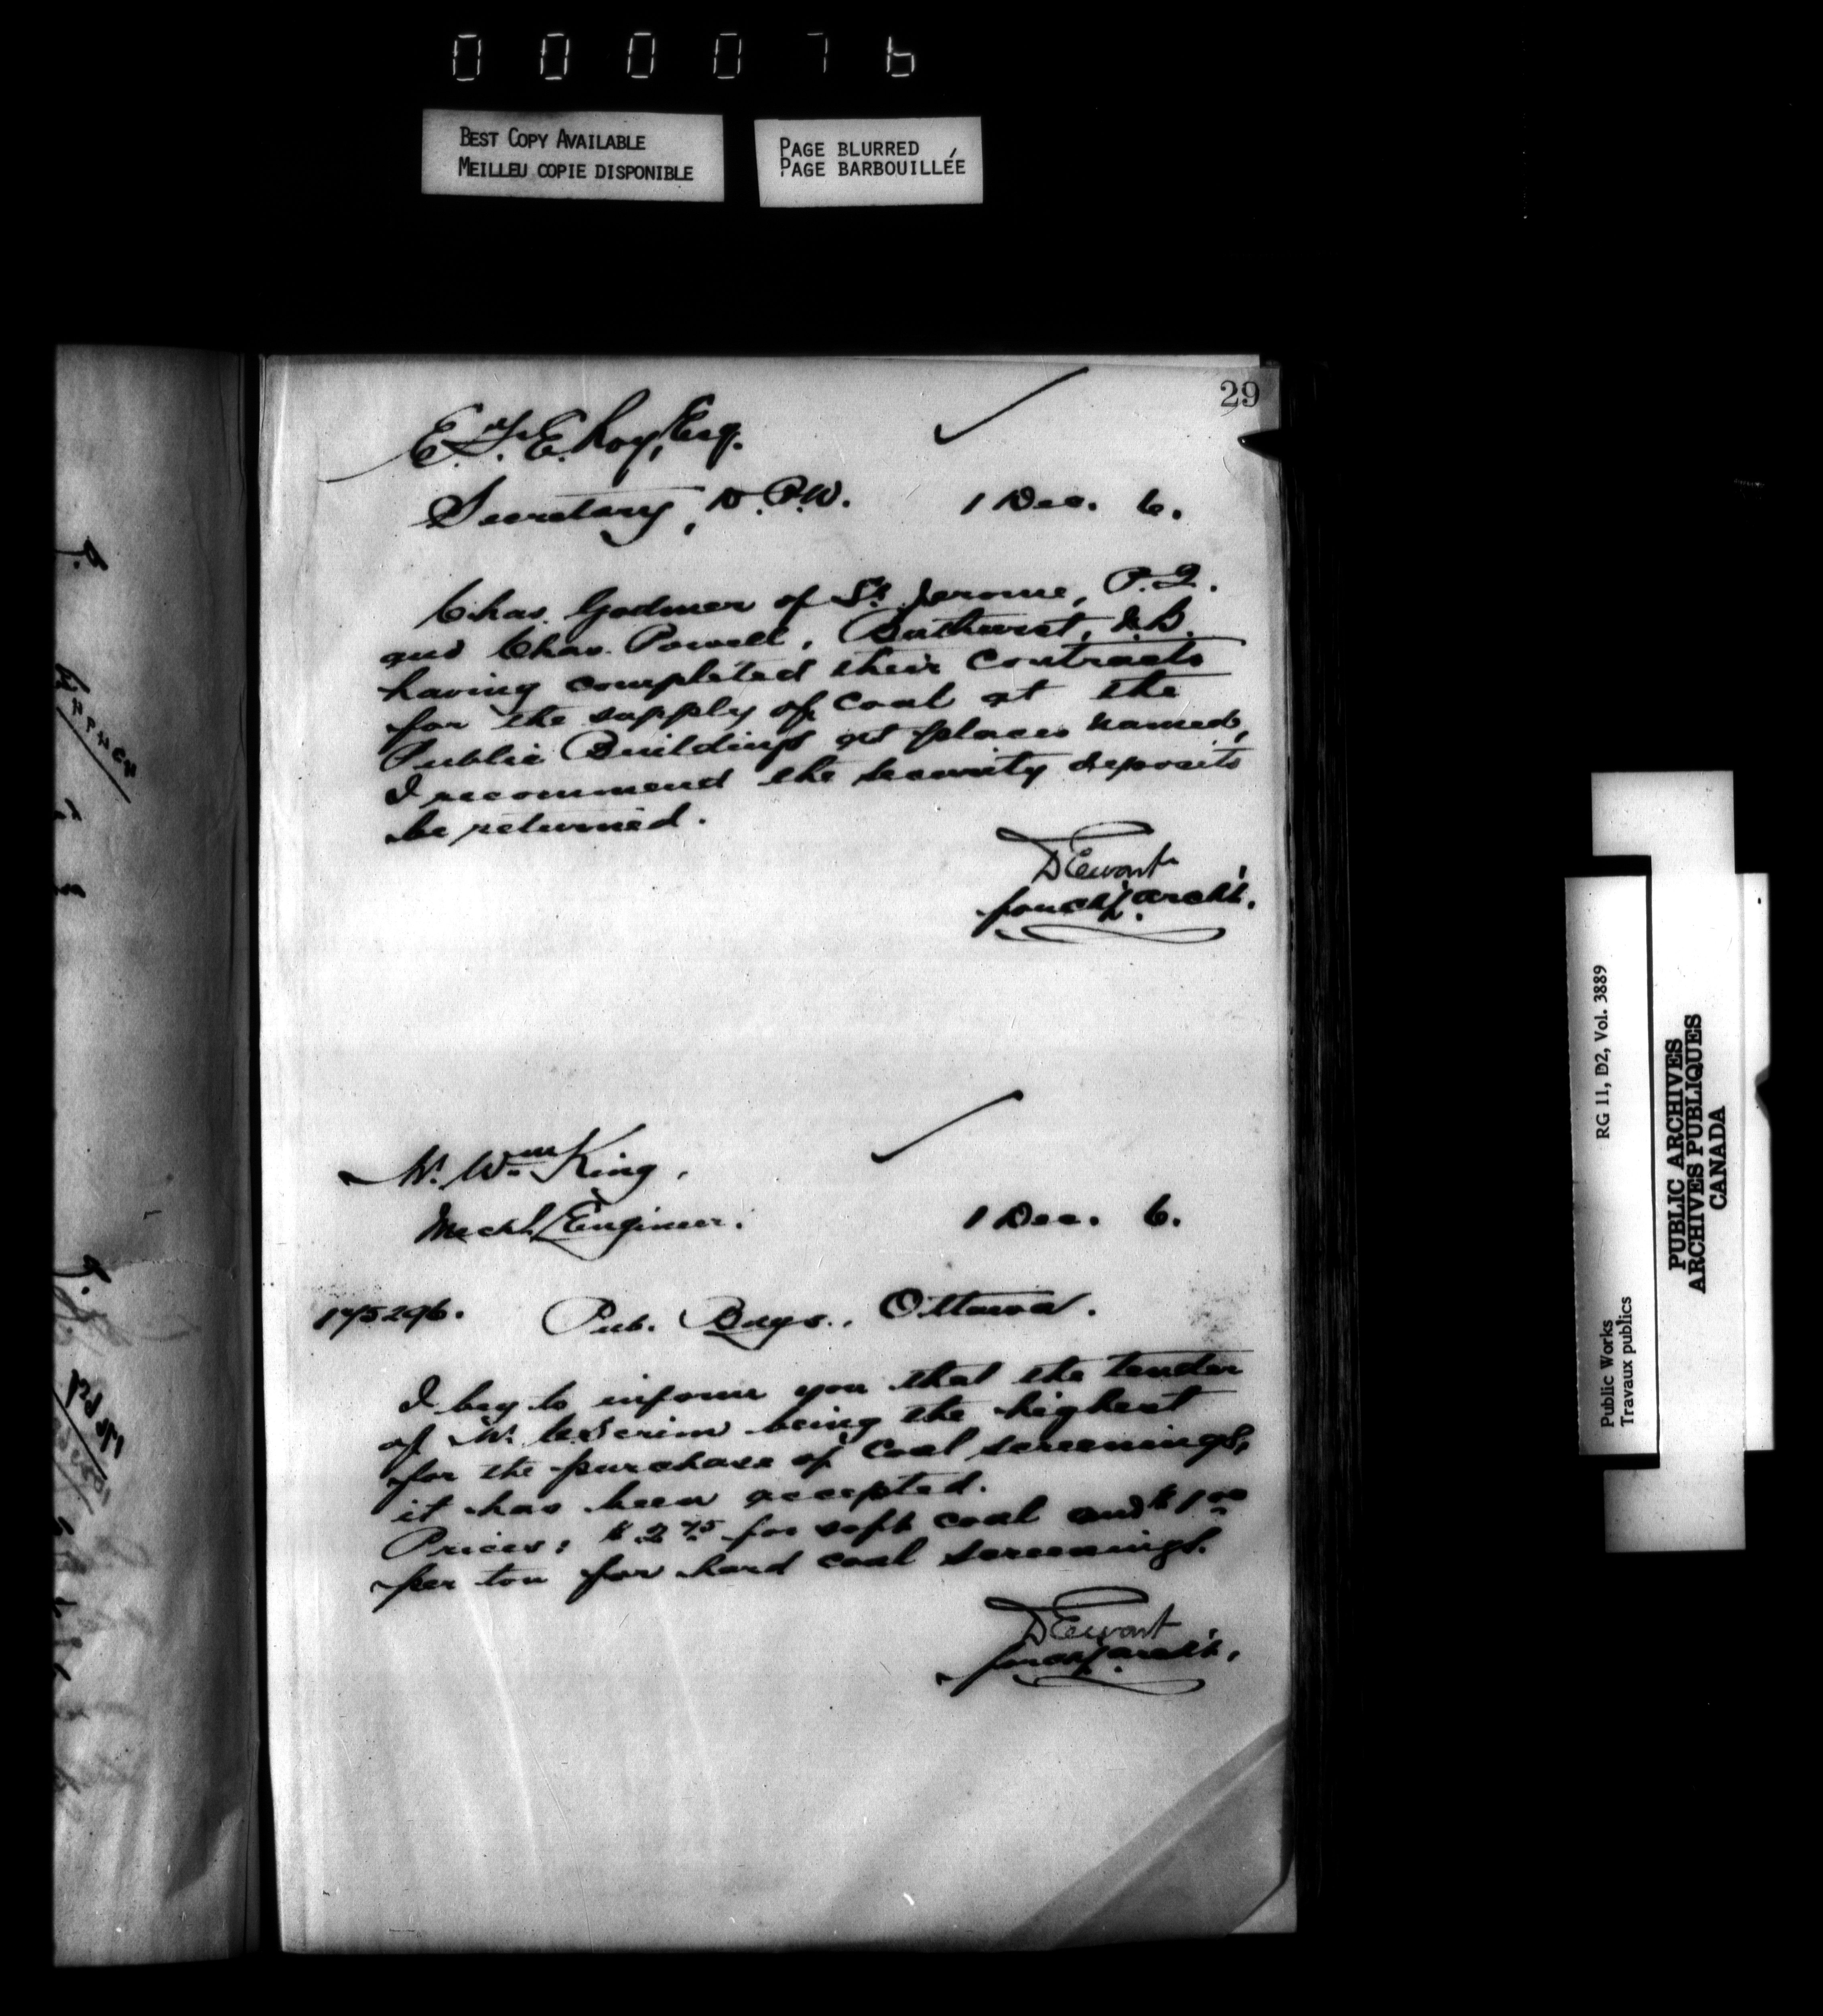 000076
BEST COPY AVAILABLE
MEILLEU COPIE DISPONIBLE
PAGE BLURRED
PAGE BARBOUILLÉE
29
E.F.E. Roy, Esq.
Secretary, D.P.W. 1 Dec. 6.
Chas. Godmer of St. Jerome, P.Q.
and Chas. Powell, Bathurst, N.B.
having completed their contracts
for the supply of coal at the
Public Buildings at places named,
I recommend the security deposits
be returned.
D Ewart
for Chf. Archt.
Mr. Wm King,
Mechl. Engineer. 1 Dec. 6.
175296. Pub. Bdgs., Ottawa.
I beg to inform you that the tender
of Mr. C. Scrim being the highest
for the purchase of coal screenings,
it has been accepted.
Prices: $2.75 for soft coal and $1.00
per ton for hard coal screenings.
D Ewart
for Chf. Archt.
Public Works RG 11, D2, Vol. 3889
Travaux publics
PUBLIC ARCHIVES
ARCHIVES PUBLIQUES
CANADA